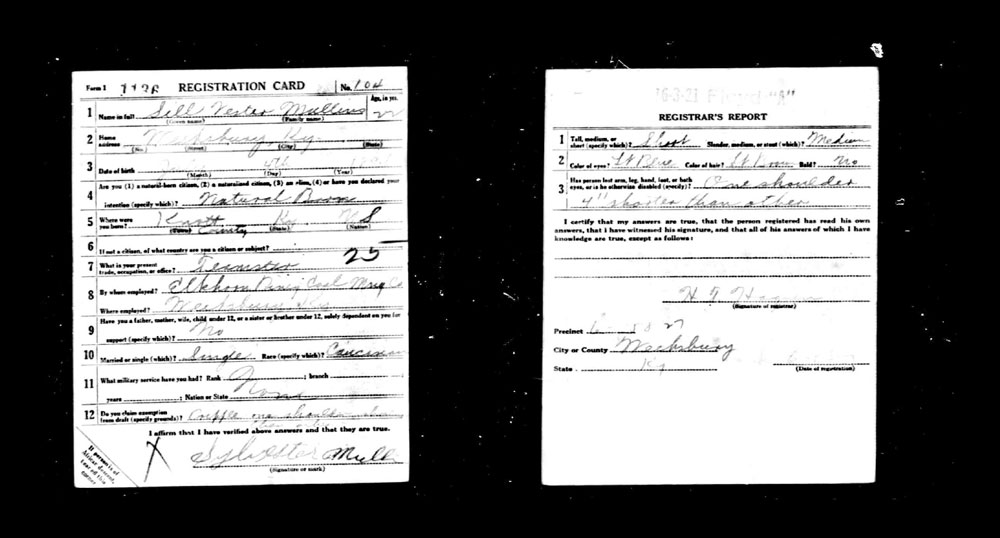 Form 1 1136 REGISTRATION CARD No. 104
1 Name in full Sell Vester Mullins Age, in yrs. 22
(Given name) (Family name)
2 Home address Weeksbury, Ky.
(No.) (Street) (City) (State)
3 Date of birth 4th
(Month) (Day) (Year)
Are you (1) a natural-born citizen, (2) a naturalized citizen, (3) an alien, (4) or have you declared your
4 intention (specify which)? Natural Born
5 Where were you born? Knott County Ky U S
(Town) (State) (Nation)
6 If not a citizen, of what country are you a citizen or subject?
25
7 What is your present trade, occupation, or office? Teamster
8 By whom employed? Elkhorn Piney Coal Mng Co
Where employed? Weeksbury Ky
Have you a father, mother, wife, child under 12, or a sister or brother under 12, solely dependent on you for
9 support (specify which)? No
10 Married or single (which)? Single Race (specify which)? Caucasian
11 What military service have you had? Rank ; branch
years ; Nation or State None
12 Do you claim exemption from draft (specify grounds)? Cripple one shoulder
I affirm that I have verified above answers and that they are true.
X Sylvester Mull
(Signature or mark)
If person is of African descent, tear off this corner
16-3-21 Floyd "A"
REGISTRAR'S REPORT
1 Tall, medium, or short (specify which)? Short Slender, medium, or stout (which)? Medium
2 Color of eyes? Lt Blue Color of hair? Lt Brown Bald? No
3 Has person lost arm, leg, hand, foot, or both eyes, or is he otherwise disabled (specify)? One shoulder
4" shorter than other
I certify that my answers are true, that the person registered has read his own
answers, that I have witnessed his signature, and that all of his answers of which I have
knowledge are true, except as follows:
(Signature of registrar)
Precinct
City or County Weeksbury
State Ky
(Date of registration)